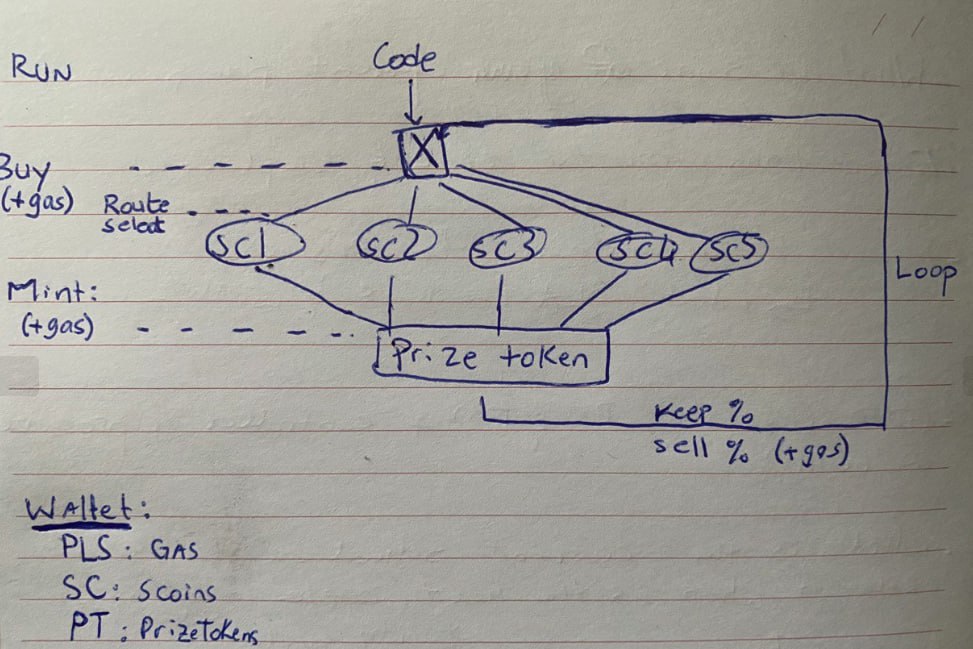 Code
RUN
X
Buy
(+gas)
Route
select
SC1 SC2 SC3 SC4 SC5
Loop
Mint:
(+gas)
Prize token
Keep %
sell % (+gas)
Wallet:
PLS: GAS
SC: Scoins
PT: PrizeTokens